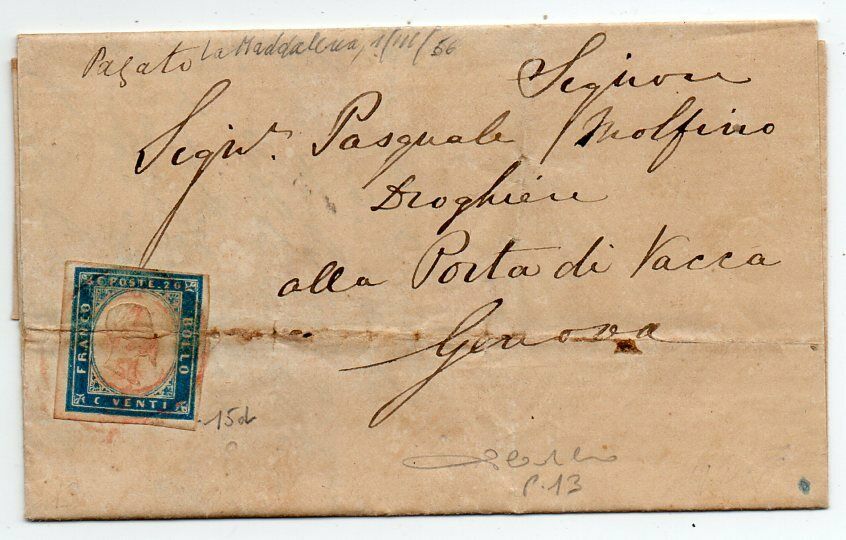 Pagato La Maddalena, 1/III/56
Signore
Sigr. Pasquale Molfino
Droghiere
alla Porta di Vacca
Genova
C POSTE 20
FRANCO
BOLLO
C VENTI
15d
P. 13